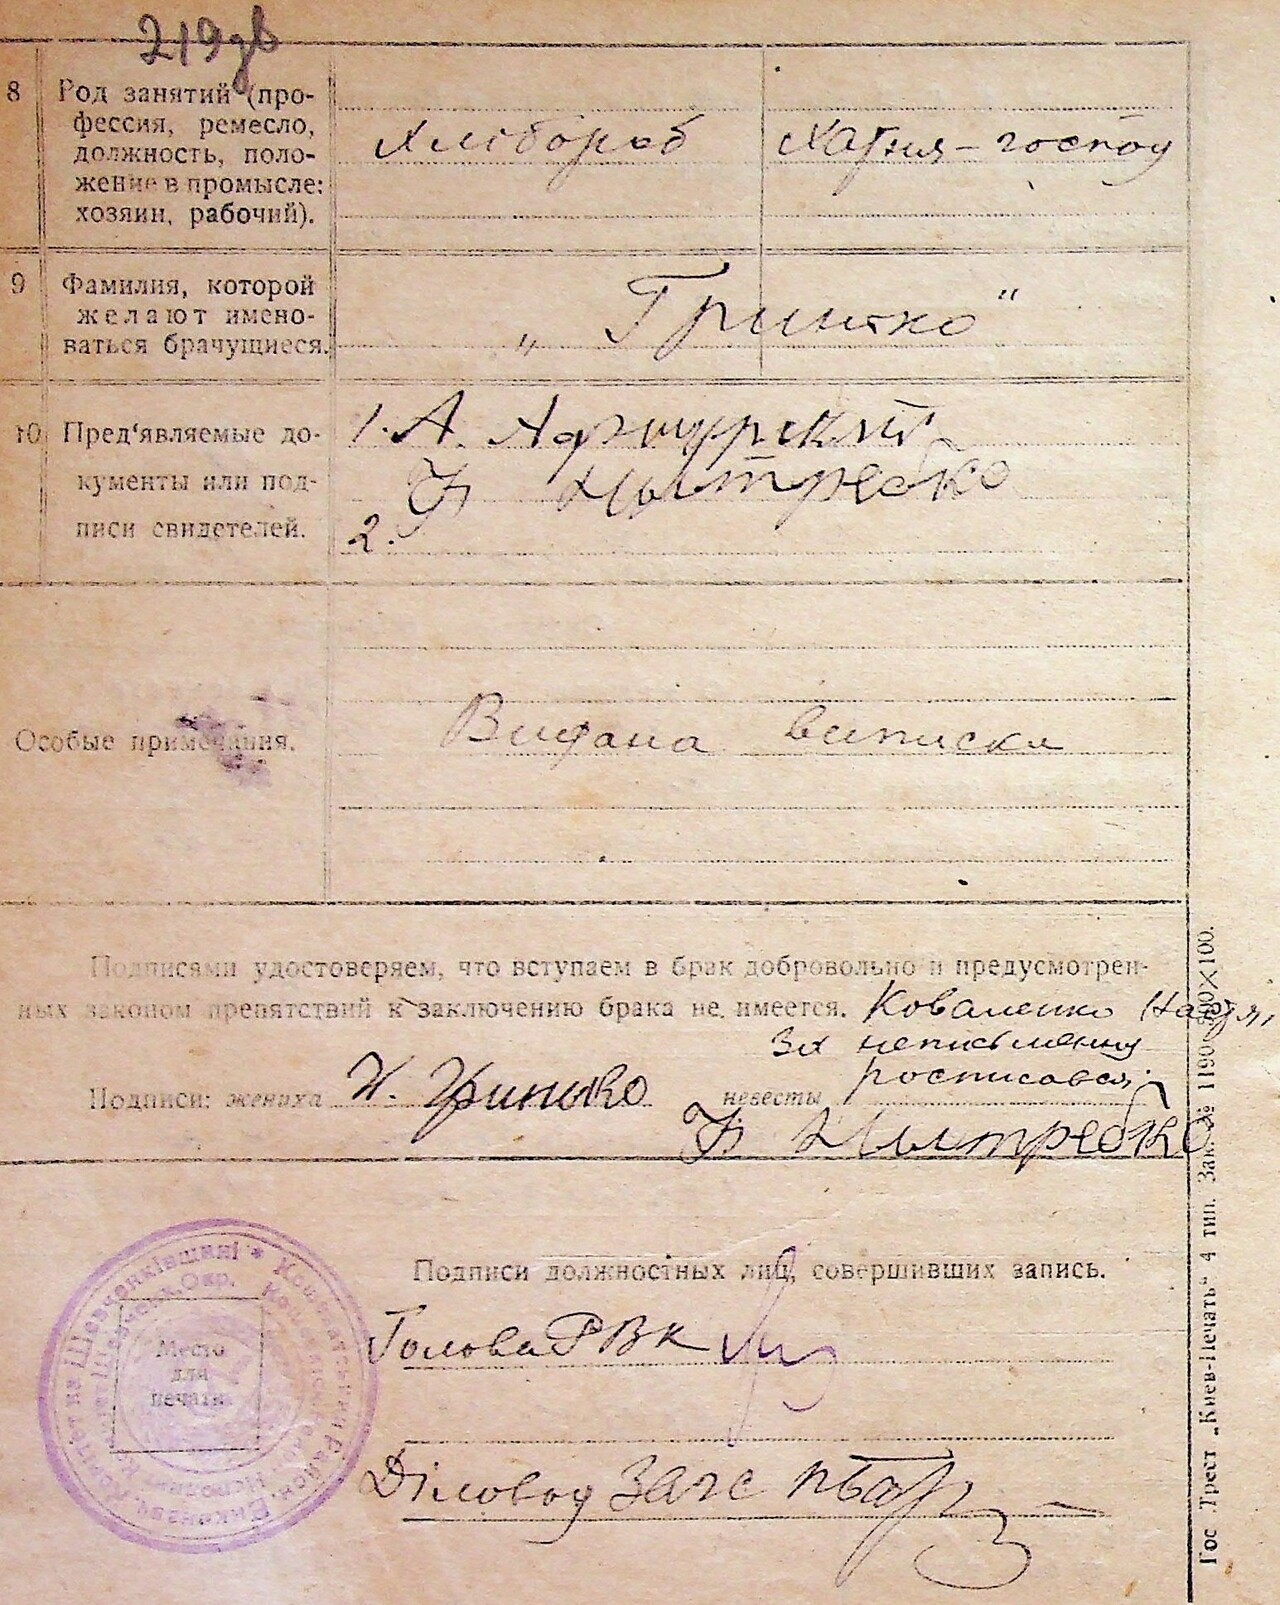 219
8
Род занятий (про-
фессия, ремесло,
должность, поло-
жение в промысле:
хозяин, рабочий).
Хлібороб
Хатня-господ
9
Фамилия, которой
желают имено-
ваться брачущиеся.
„Гринько“
10
Пред'являемые до-
кументы или под-
писи свидетелей.
1. А.
2.
Особые примечания.
Видана виписка
Подписями удостоверяем, что вступаем в брак добровольно и предусмотрен-
ных законом препятствий к заключению брака не имеется.
Коваленко
За неписьменну
росписався
Подписи: жениха
Гринько
невесты
Подписи должностных лиц, совершивших запись.
Голова РВК
Діловод ЗАГС
Место
для
печати
Гос. Трест „Киев-Печать“ 4 тип. Зак. № 1190